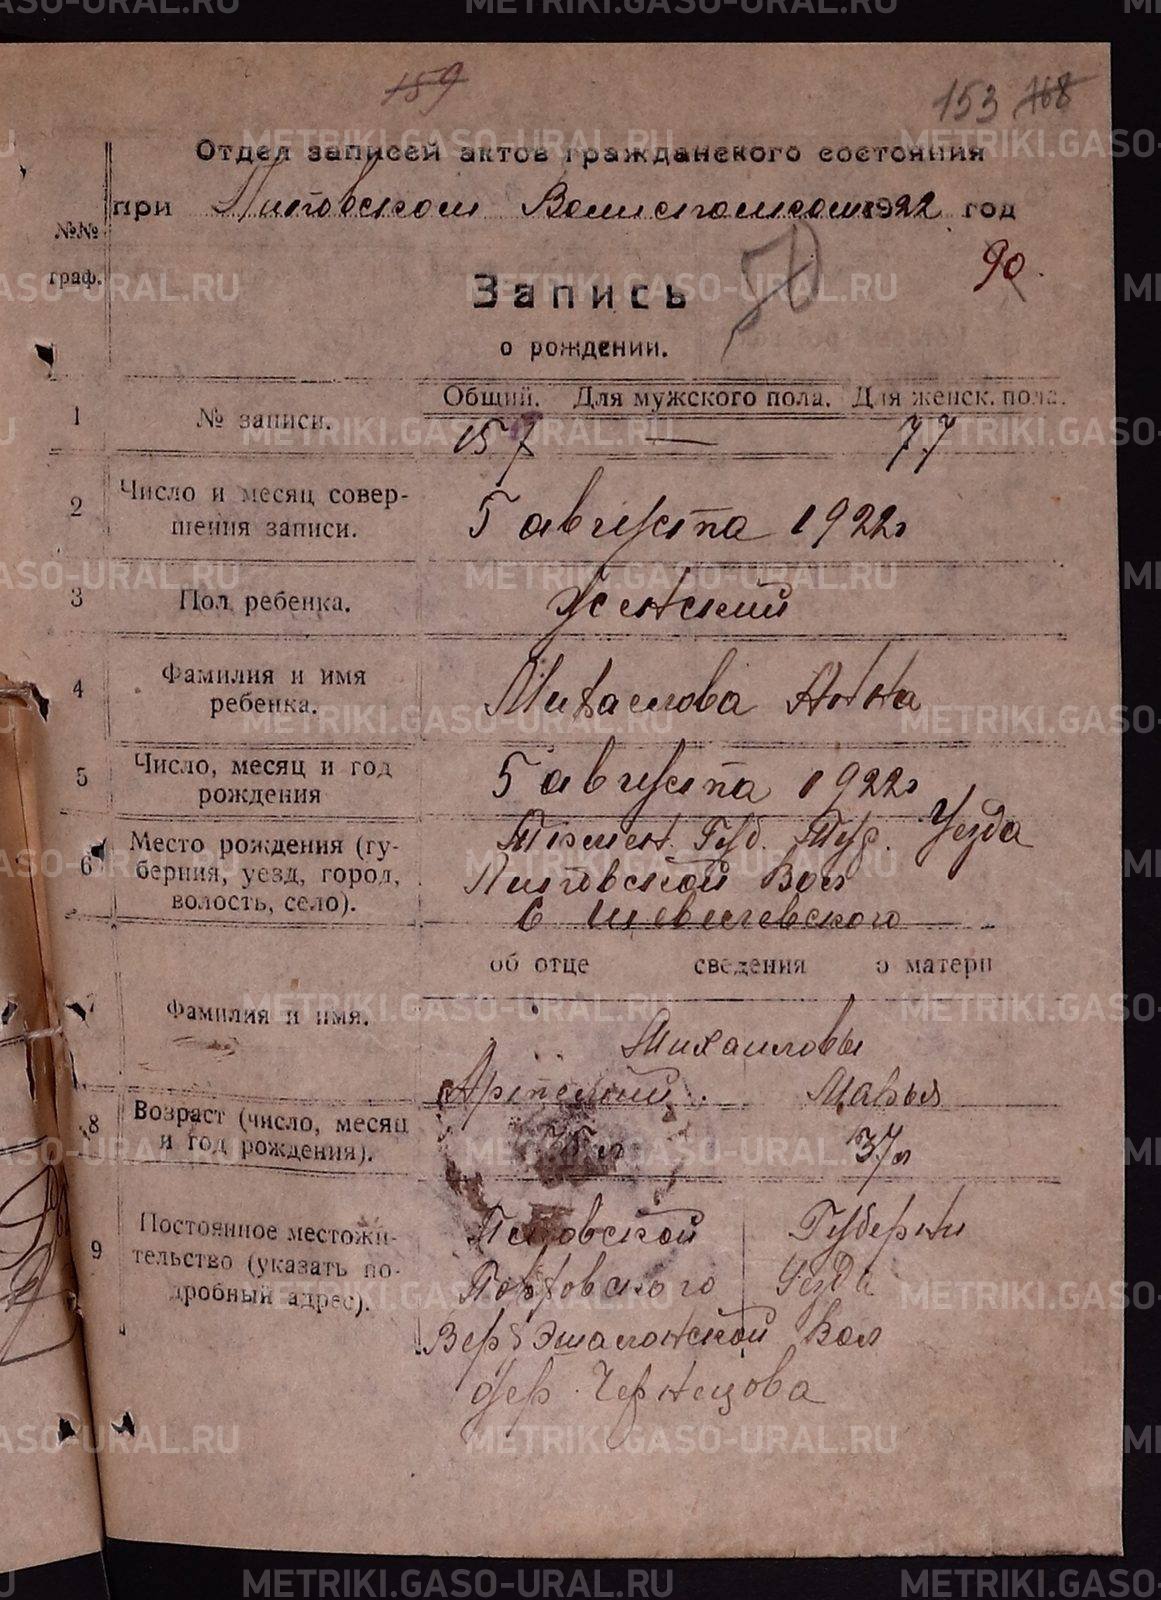 159
153 168
Отдел записей актов гражданского состояния
при Липовском Волисполком 1922 год
№№ граф.
90.
Запись
о рождении.
Общий. Для мужского пола. Для женск. пола.
1 № записи. 157 — 77
2 Число и месяц совершения записи. 5 августа 1922г
3 Пол ребенка. Женский
4 Фамилия и имя ребенка. Михаилова Анна
5 Число, месяц и год рождения 5 августа 1922г
6 Место рождения (губерния, уезд, город, волость, село). Тюмен. Губ. Тур. Уезда
Липовской Вол
с
об отце сведения о матери
7 Фамилия и имя. Михаиловы
Артемий Марья
8 Возраст (число, месяц и год рождения). 37л
9 Постоянное местожительство (указать подробный адрес). Псковской Губерни
Уезда
Вол
дер. Чернецова
METRIKI.GASO-URAL.RU